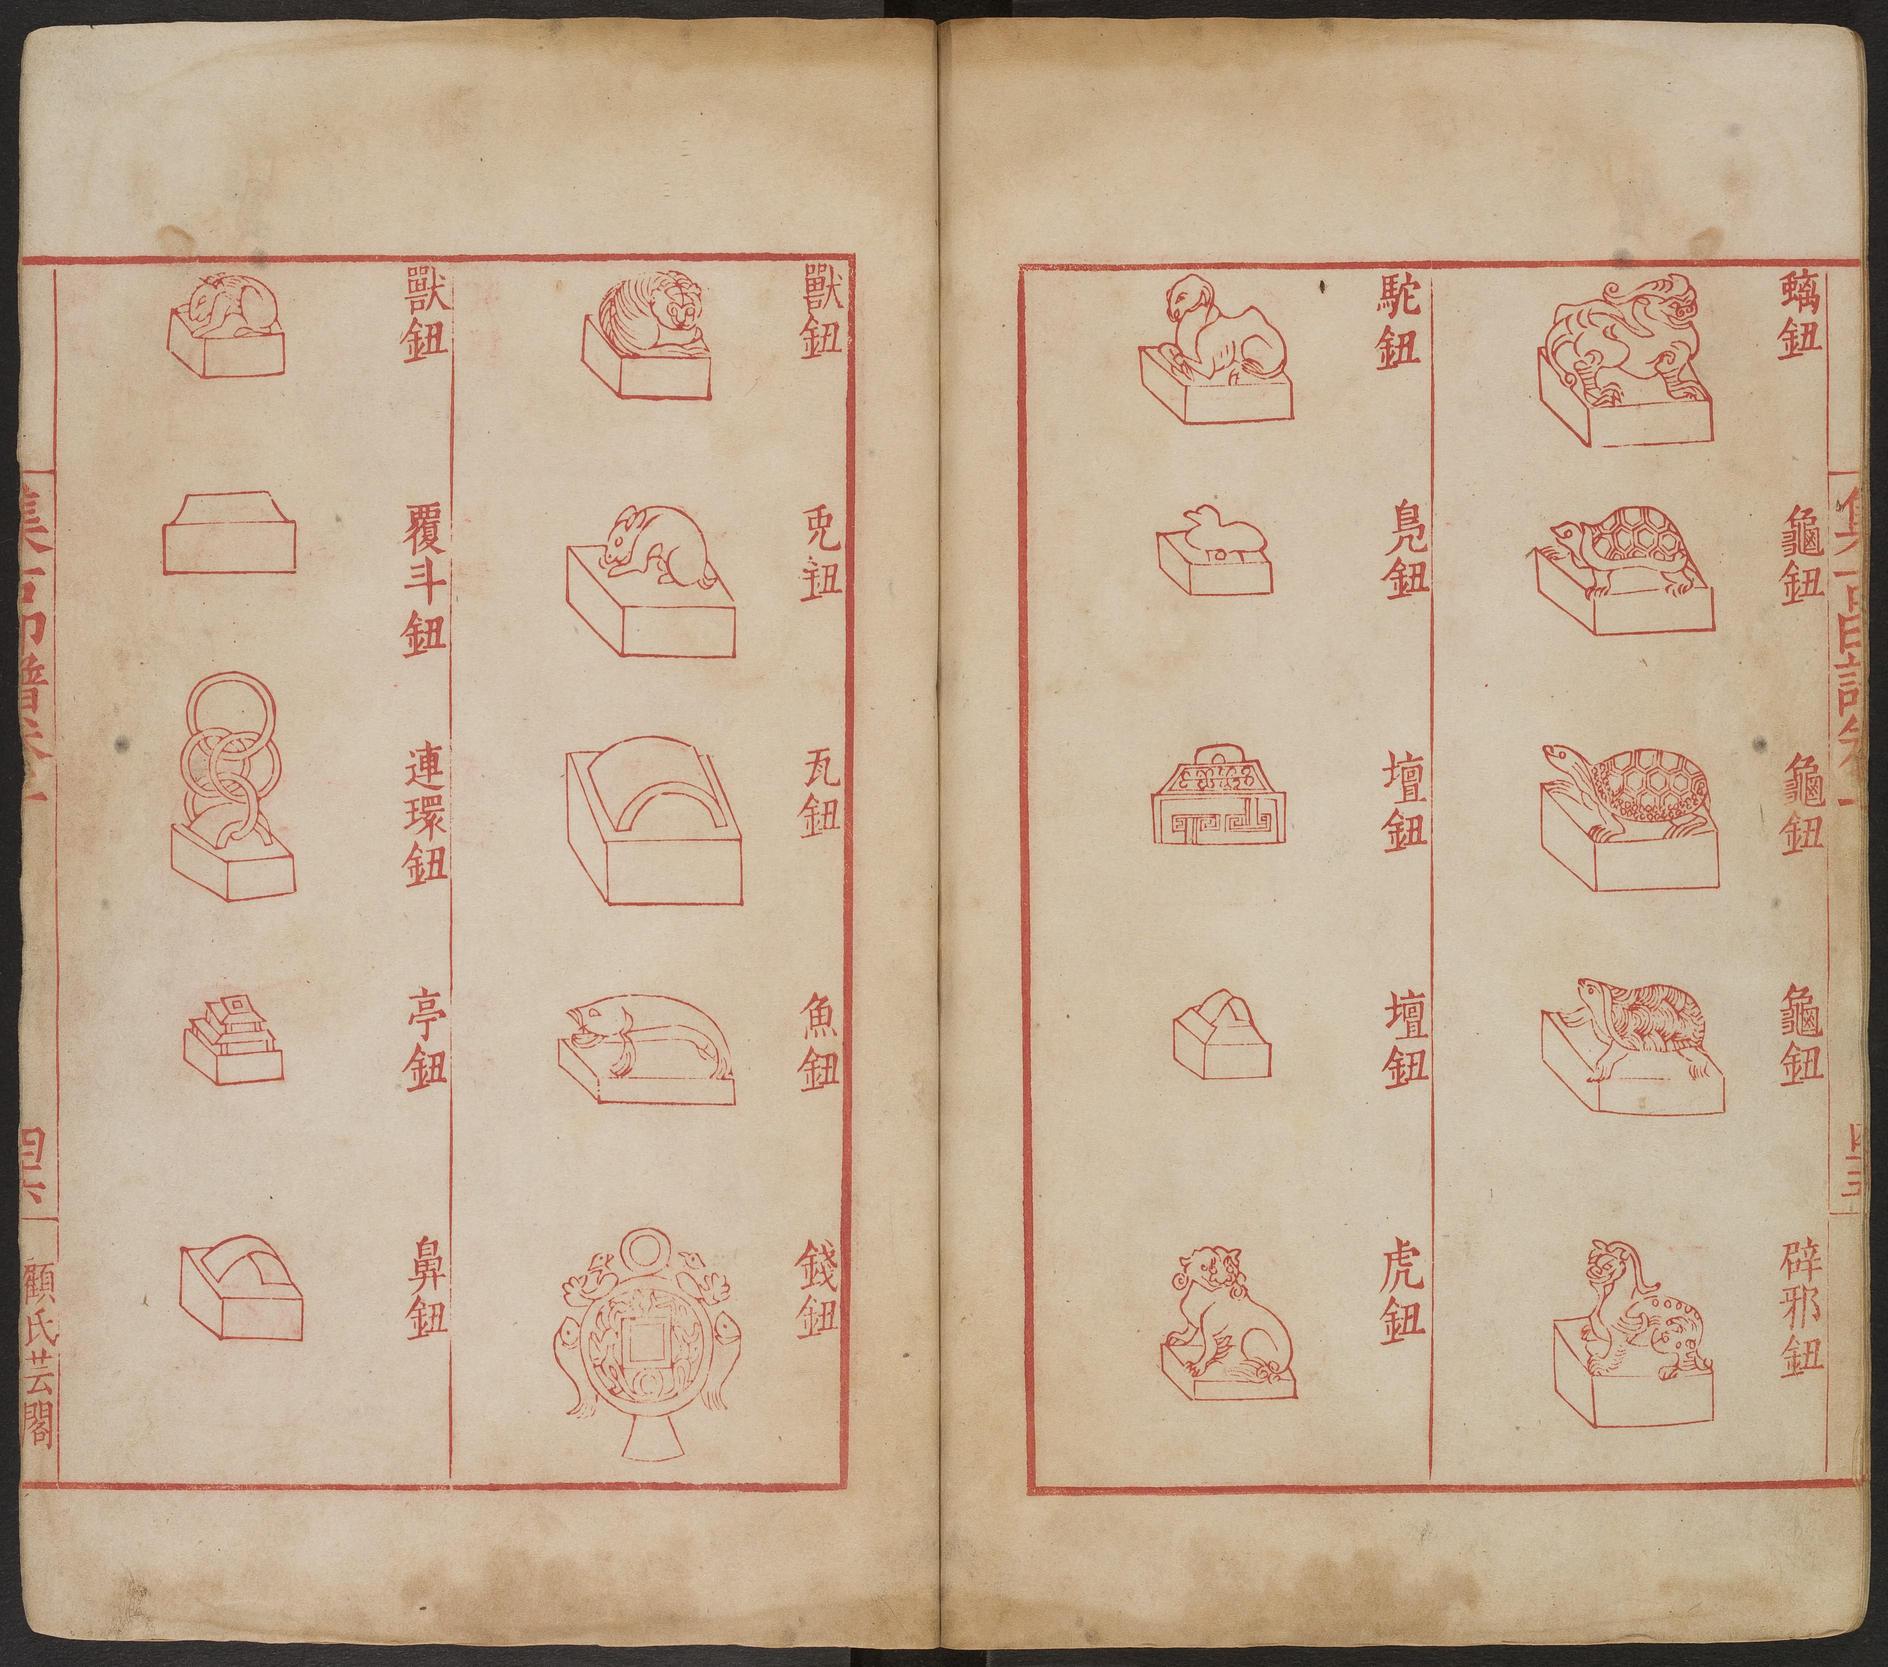 螭鈕
龜鈕
龜鈕
龜鈕
辟邪鈕
駝鈕
鳧鈕
壇鈕
壇鈕
虎鈕
獸鈕
兎鈕
瓦鈕
魚鈕
錢鈕
獸鈕
覆斗鈕
連環鈕
亭鈕
鼻鈕
集古印譜卷
四六
顧氏芸閣